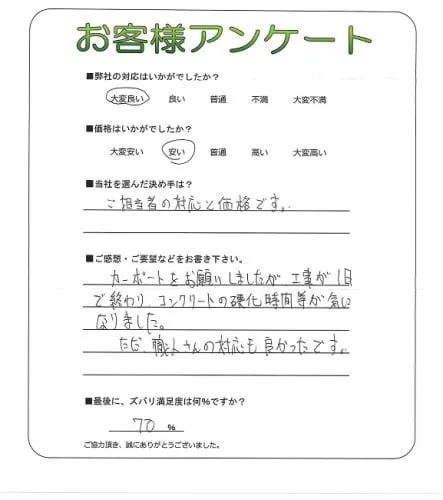 お客様アンケート
■弊社の対応はいかがでしたか?
大変良い 良い 普通 不満 大変不満
■価格はいかがでしたか?
大変安い 安い 普通 高い 大変高い
■当社を選んだ決め手は?
ご担当者の対応と価格です。
■ご感想・ご要望などをお書き下さい。
カーポートをお願いしましたが、工事が1日
で終わり、コンクリートの硬化時間等が気に
なりました。
ただ、職人さんの対応も良かったです。
■最後に、ズバリ満足度は何%ですか?
70 %
ご協力頂き、誠にありがとうございました。